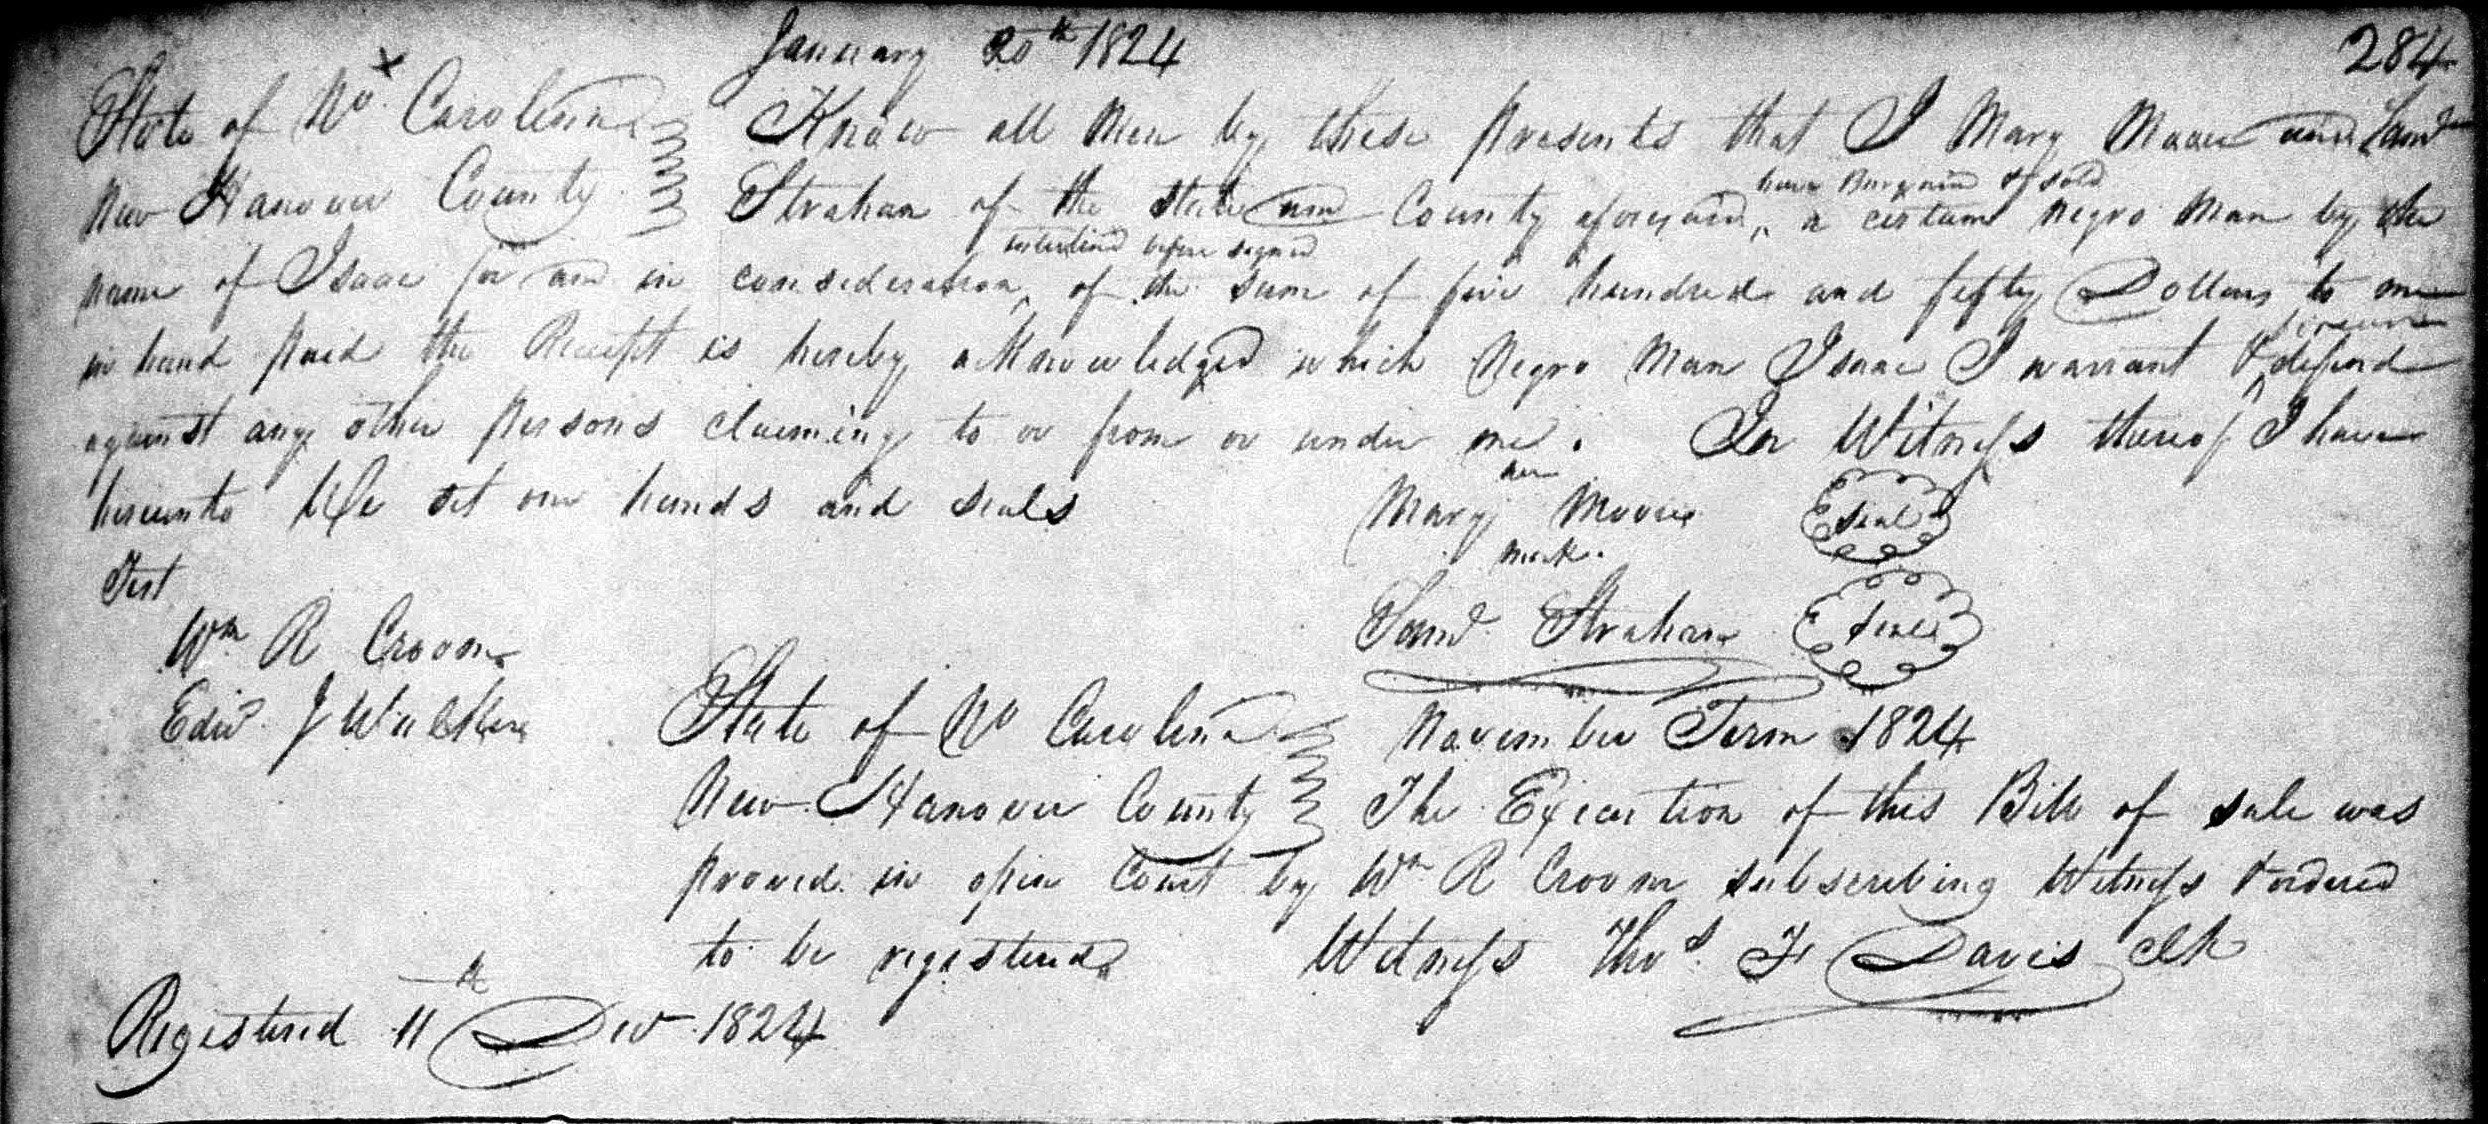 January 20th 1824
284
State of No. Carolina Know all Men by these presents that I Mary Moore and Saml
New Hanover County Strahan of the State and County aforesaid, have Bargaind & sold a certain negro Man by the
interlined before signed
name of Isaac for and in consideration, of the sum of five hundred and fifty Dollars to me
in hand paid the Receipt is hereby acknowledged which Negro Man Isaac I warrant & forever defend
against any other persons claiming to or from or under me. In Witness thereof I have
hereunto set our hands and seals
her
Mary Moore Seal
mark.
Test
Saml Strahan Seal
Wm R Croom
Edwd J Walker
State of No Carolina November Term 1824
New Hanover County The Execution of this Bill of sale was
proved in open Court by Wm R Croom subscribing Witness & ordered
to be registered Witness Thos. F Davis Clk
Registered 11th Decr 1824